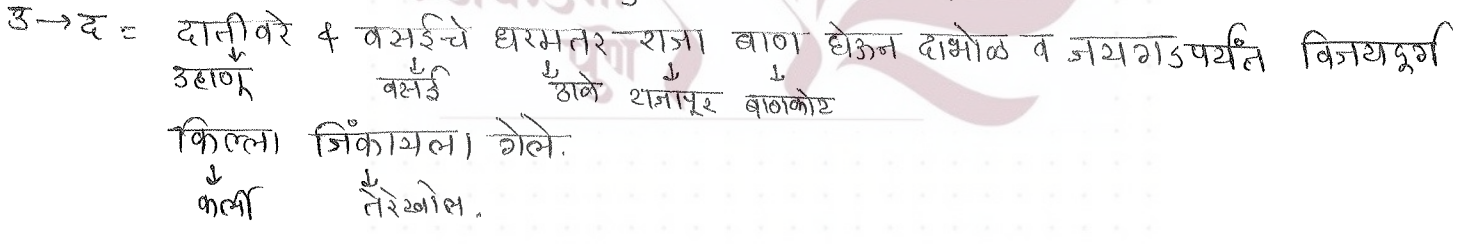 उ→द = दातीवरे & वसईचे धरमतर राजा बाण घेऊन दाभोळ व जयगडपर्यंत विजयदुर्ग
↓ ↓ ↓ ↓ ↓
डहाणू वसई ठाणे राजापूर बाणकोट
किल्ला जिंकायला गेले.
↓ ↓
कर्ली तेरेखोल.